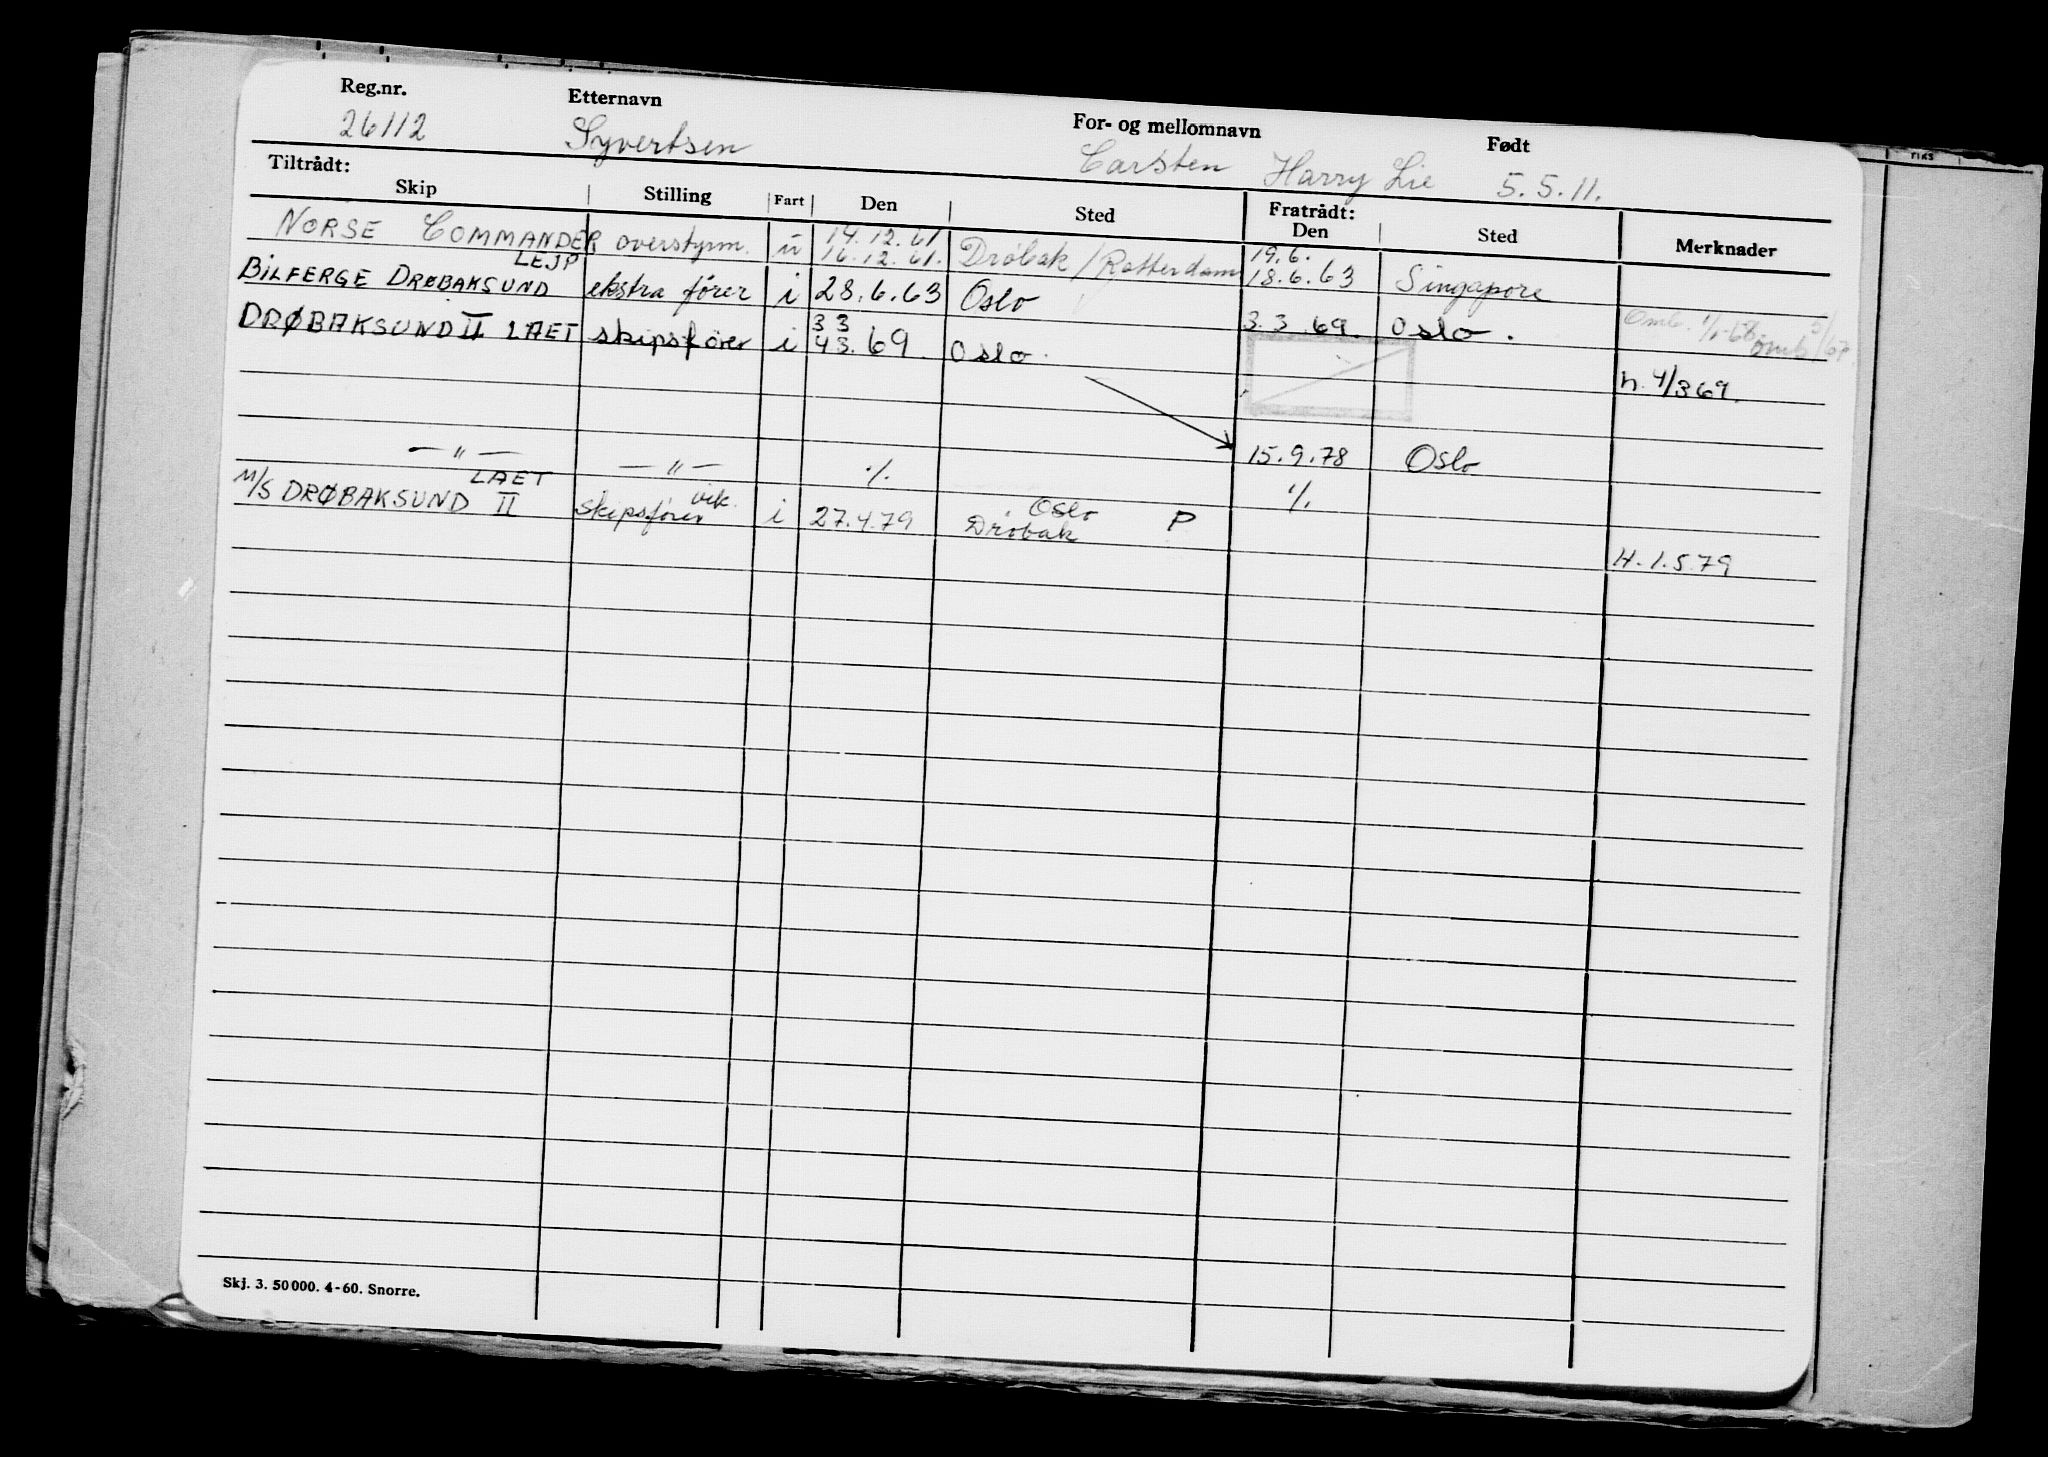 Reg.nr. Etternavn For- og mellomnavn Født
26112 Syvertsen Carsten Harry Lie 5.5.11.
Tiltrådt: Fratrådt:
Skip Stilling Fart Den Sted Den Sted Merknader
14.12.61 19.6.
NORSE COMMANDER overstyrm. u 16.12.61. Drøbak/Rotterdam 18.6.63 Singapore
LEJP
BILFERGE DRØBAKSUND ekstra fører i 28.6.63 Oslo 3.3.69. Oslo. Omb. 1/1-68
3 3
DRØBAKSUND II LAET skipsfører i 43.69. Oslo.
h. 4/3 69.
— " — — " — 15.9.78 Oslo
LAET ./. ./.
M/S DRØBAKSUND II skipsfører vik. i 27.4.79 Oslo
Drøbak P
H. 1.5.79
Skj. 3. 50 000. 4-60. Snorre.